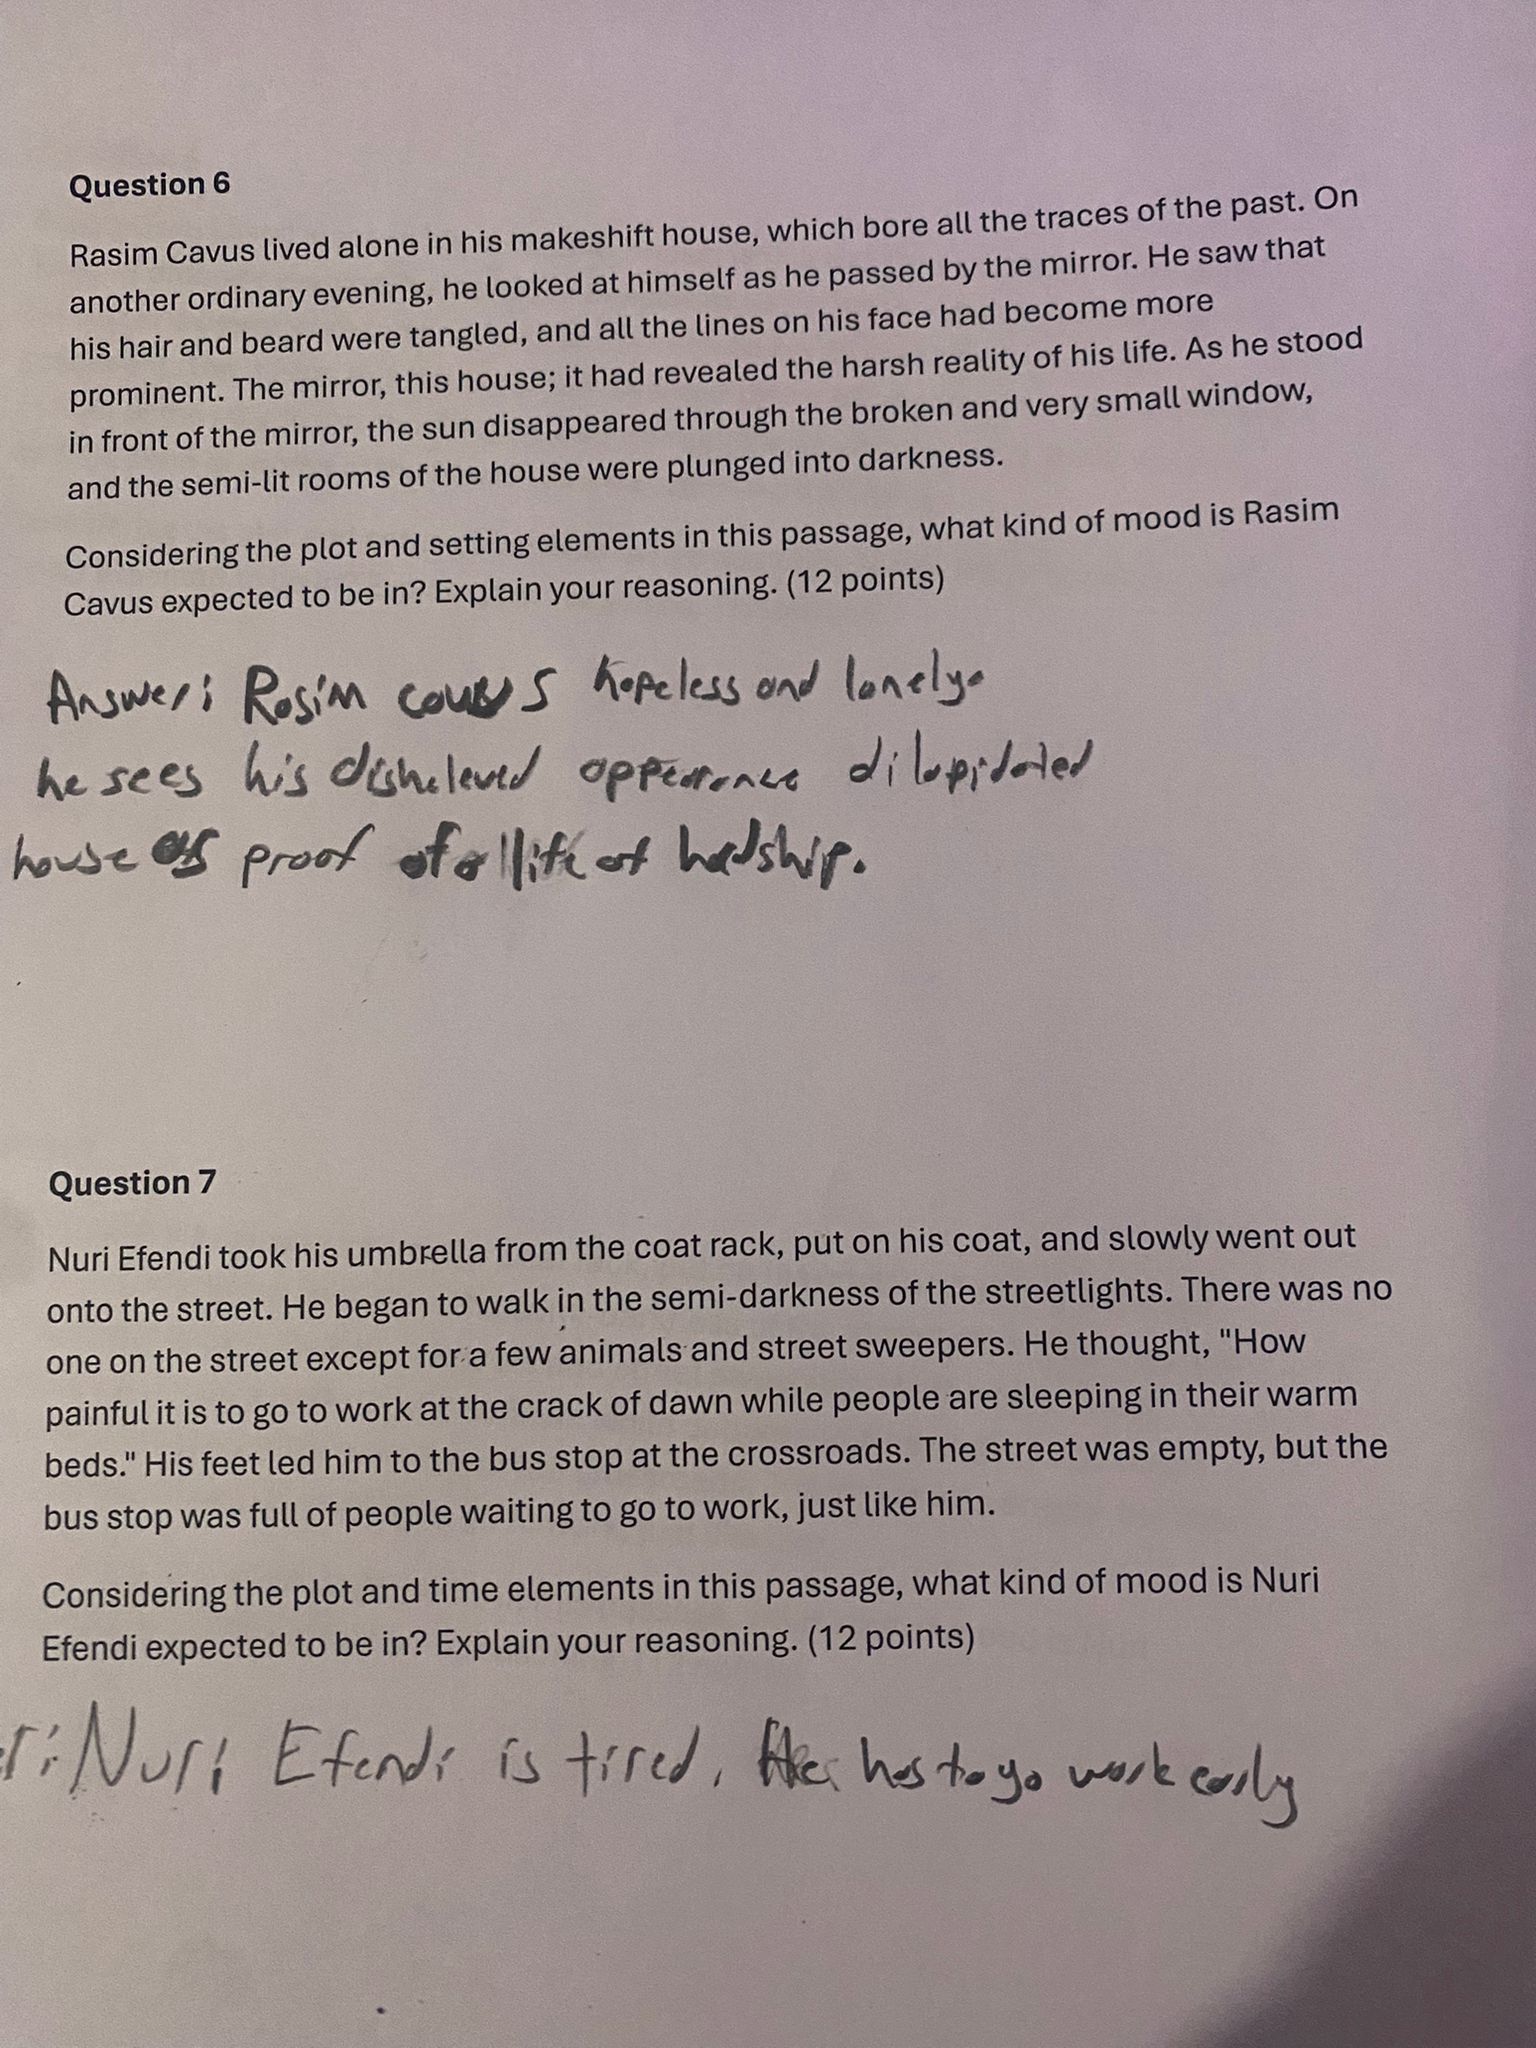 Question 6
Rasim Cavus lived alone in his makeshift house, which bore all the traces of the past. On
another ordinary evening, he looked at himself as he passed by the mirror. He saw that
his hair and beard were tangled, and all the lines on his face had become more
prominent. The mirror, this house; it had revealed the harsh reality of his life. As he stood
in front of the mirror, the sun disappeared through the broken and very small window,
and the semi-lit rooms of the house were plunged into darkness.
Considering the plot and setting elements in this passage, what kind of mood is Rasim
Cavus expected to be in? Explain your reasoning. (12 points)
Answer: Rasim cavus hopeless and lonely.
he sees his disheleved appearance dilapidated
house as proof of a life of hadship.
Question 7
Nuri Efendi took his umbrella from the coat rack, put on his coat, and slowly went out
onto the street. He began to walk in the semi-darkness of the streetlights. There was no
one on the street except for a few animals and street sweepers. He thought, "How
painful it is to go to work at the crack of dawn while people are sleeping in their warm
beds." His feet led him to the bus stop at the crossroads. The street was empty, but the
bus stop was full of people waiting to go to work, just like him.
Considering the plot and time elements in this passage, what kind of mood is Nuri
Efendi expected to be in? Explain your reasoning. (12 points)
Nuri Efendi is tired. He has to go work early